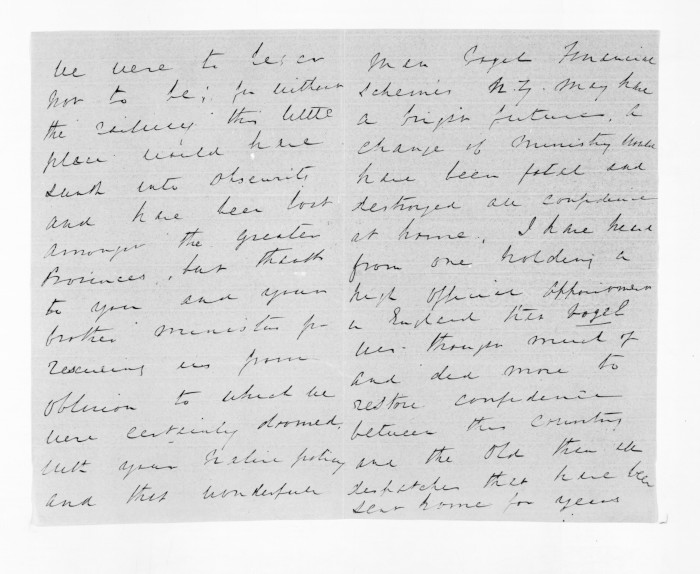 we were to be; or
not to be; for without
the railway this little
place would have
sunk into obscurity
and have been lost
amongst the greater
Provinces, but thanks
to you and your
brother ministers for
rescuing us from
oblivion to which we
were certainly doomed,
with your native policy
and that wonderful
man Vogel Financial
schemes N.Z. may have
a bright future, a
change of Ministry would
have been fatal and
destroyed all confidence
at home, I have heard
from one holding a
high official appointment
in England that Vogel
was thought much of
and did more to
restore confidence
between this Country
and the Old than all
despatches that have been
sent home for years